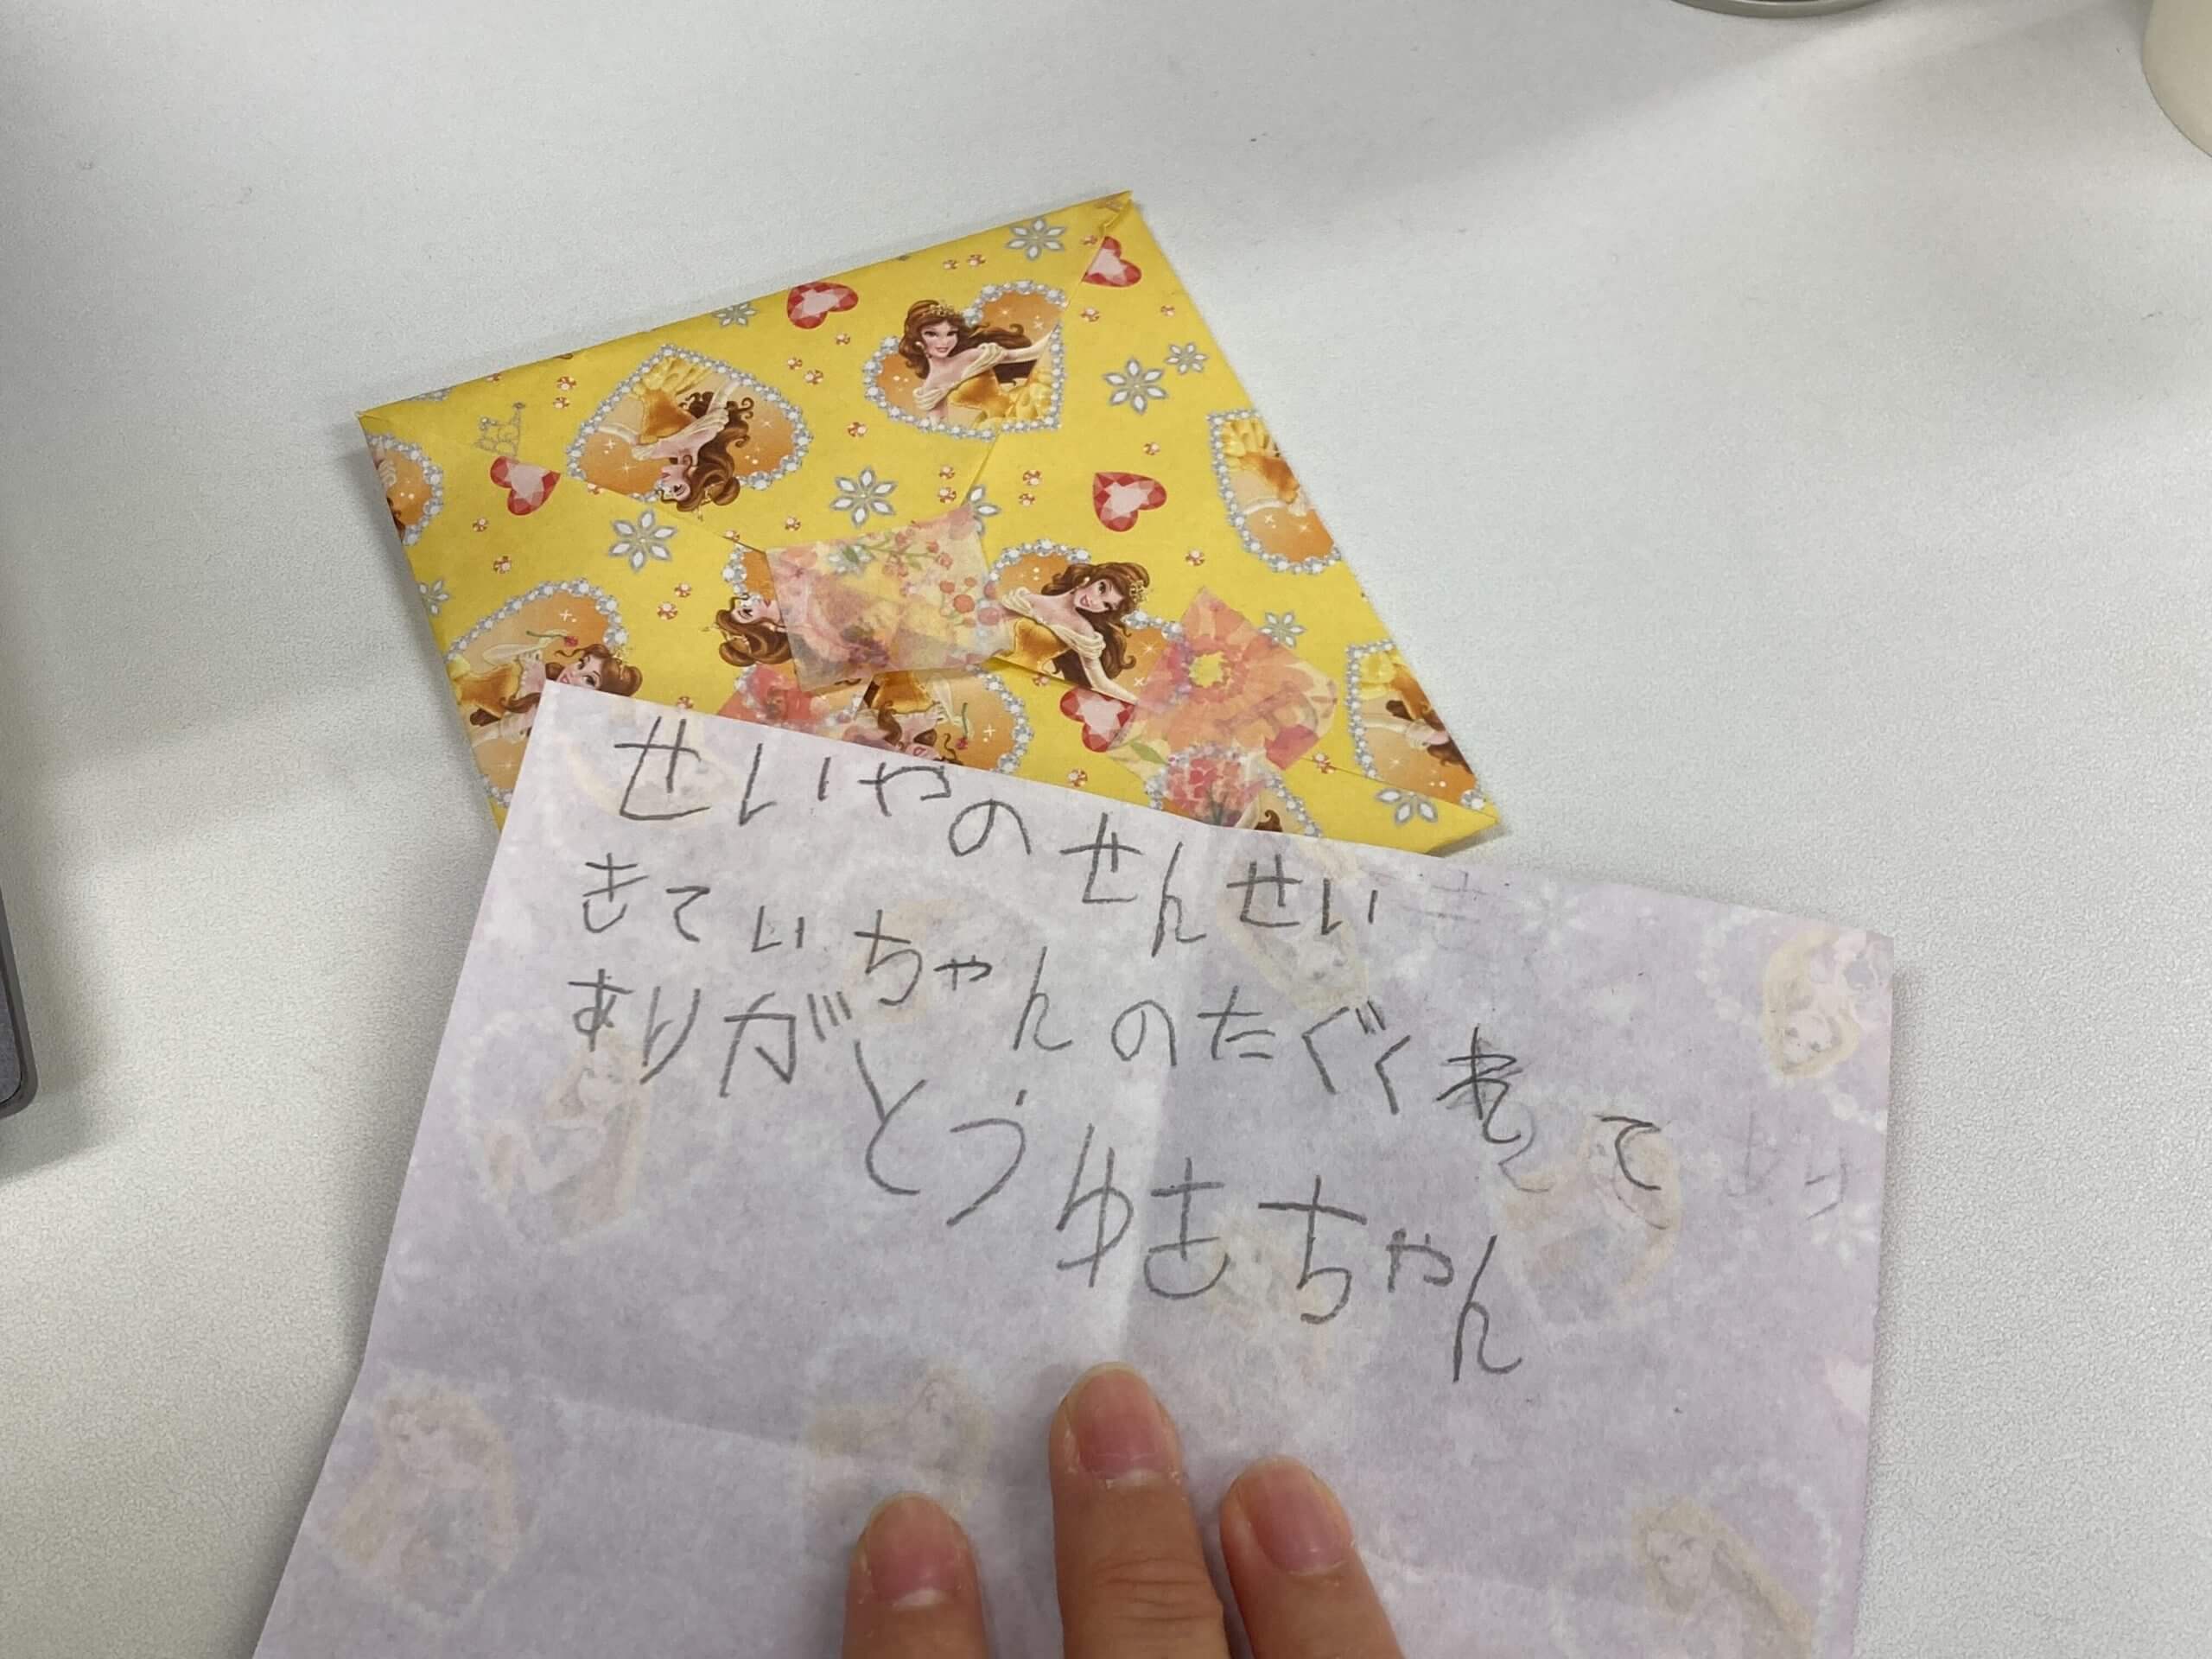 せいやのせんせい
きてぃちゃんのたぐくれて
ありがとう ゆきちゃん